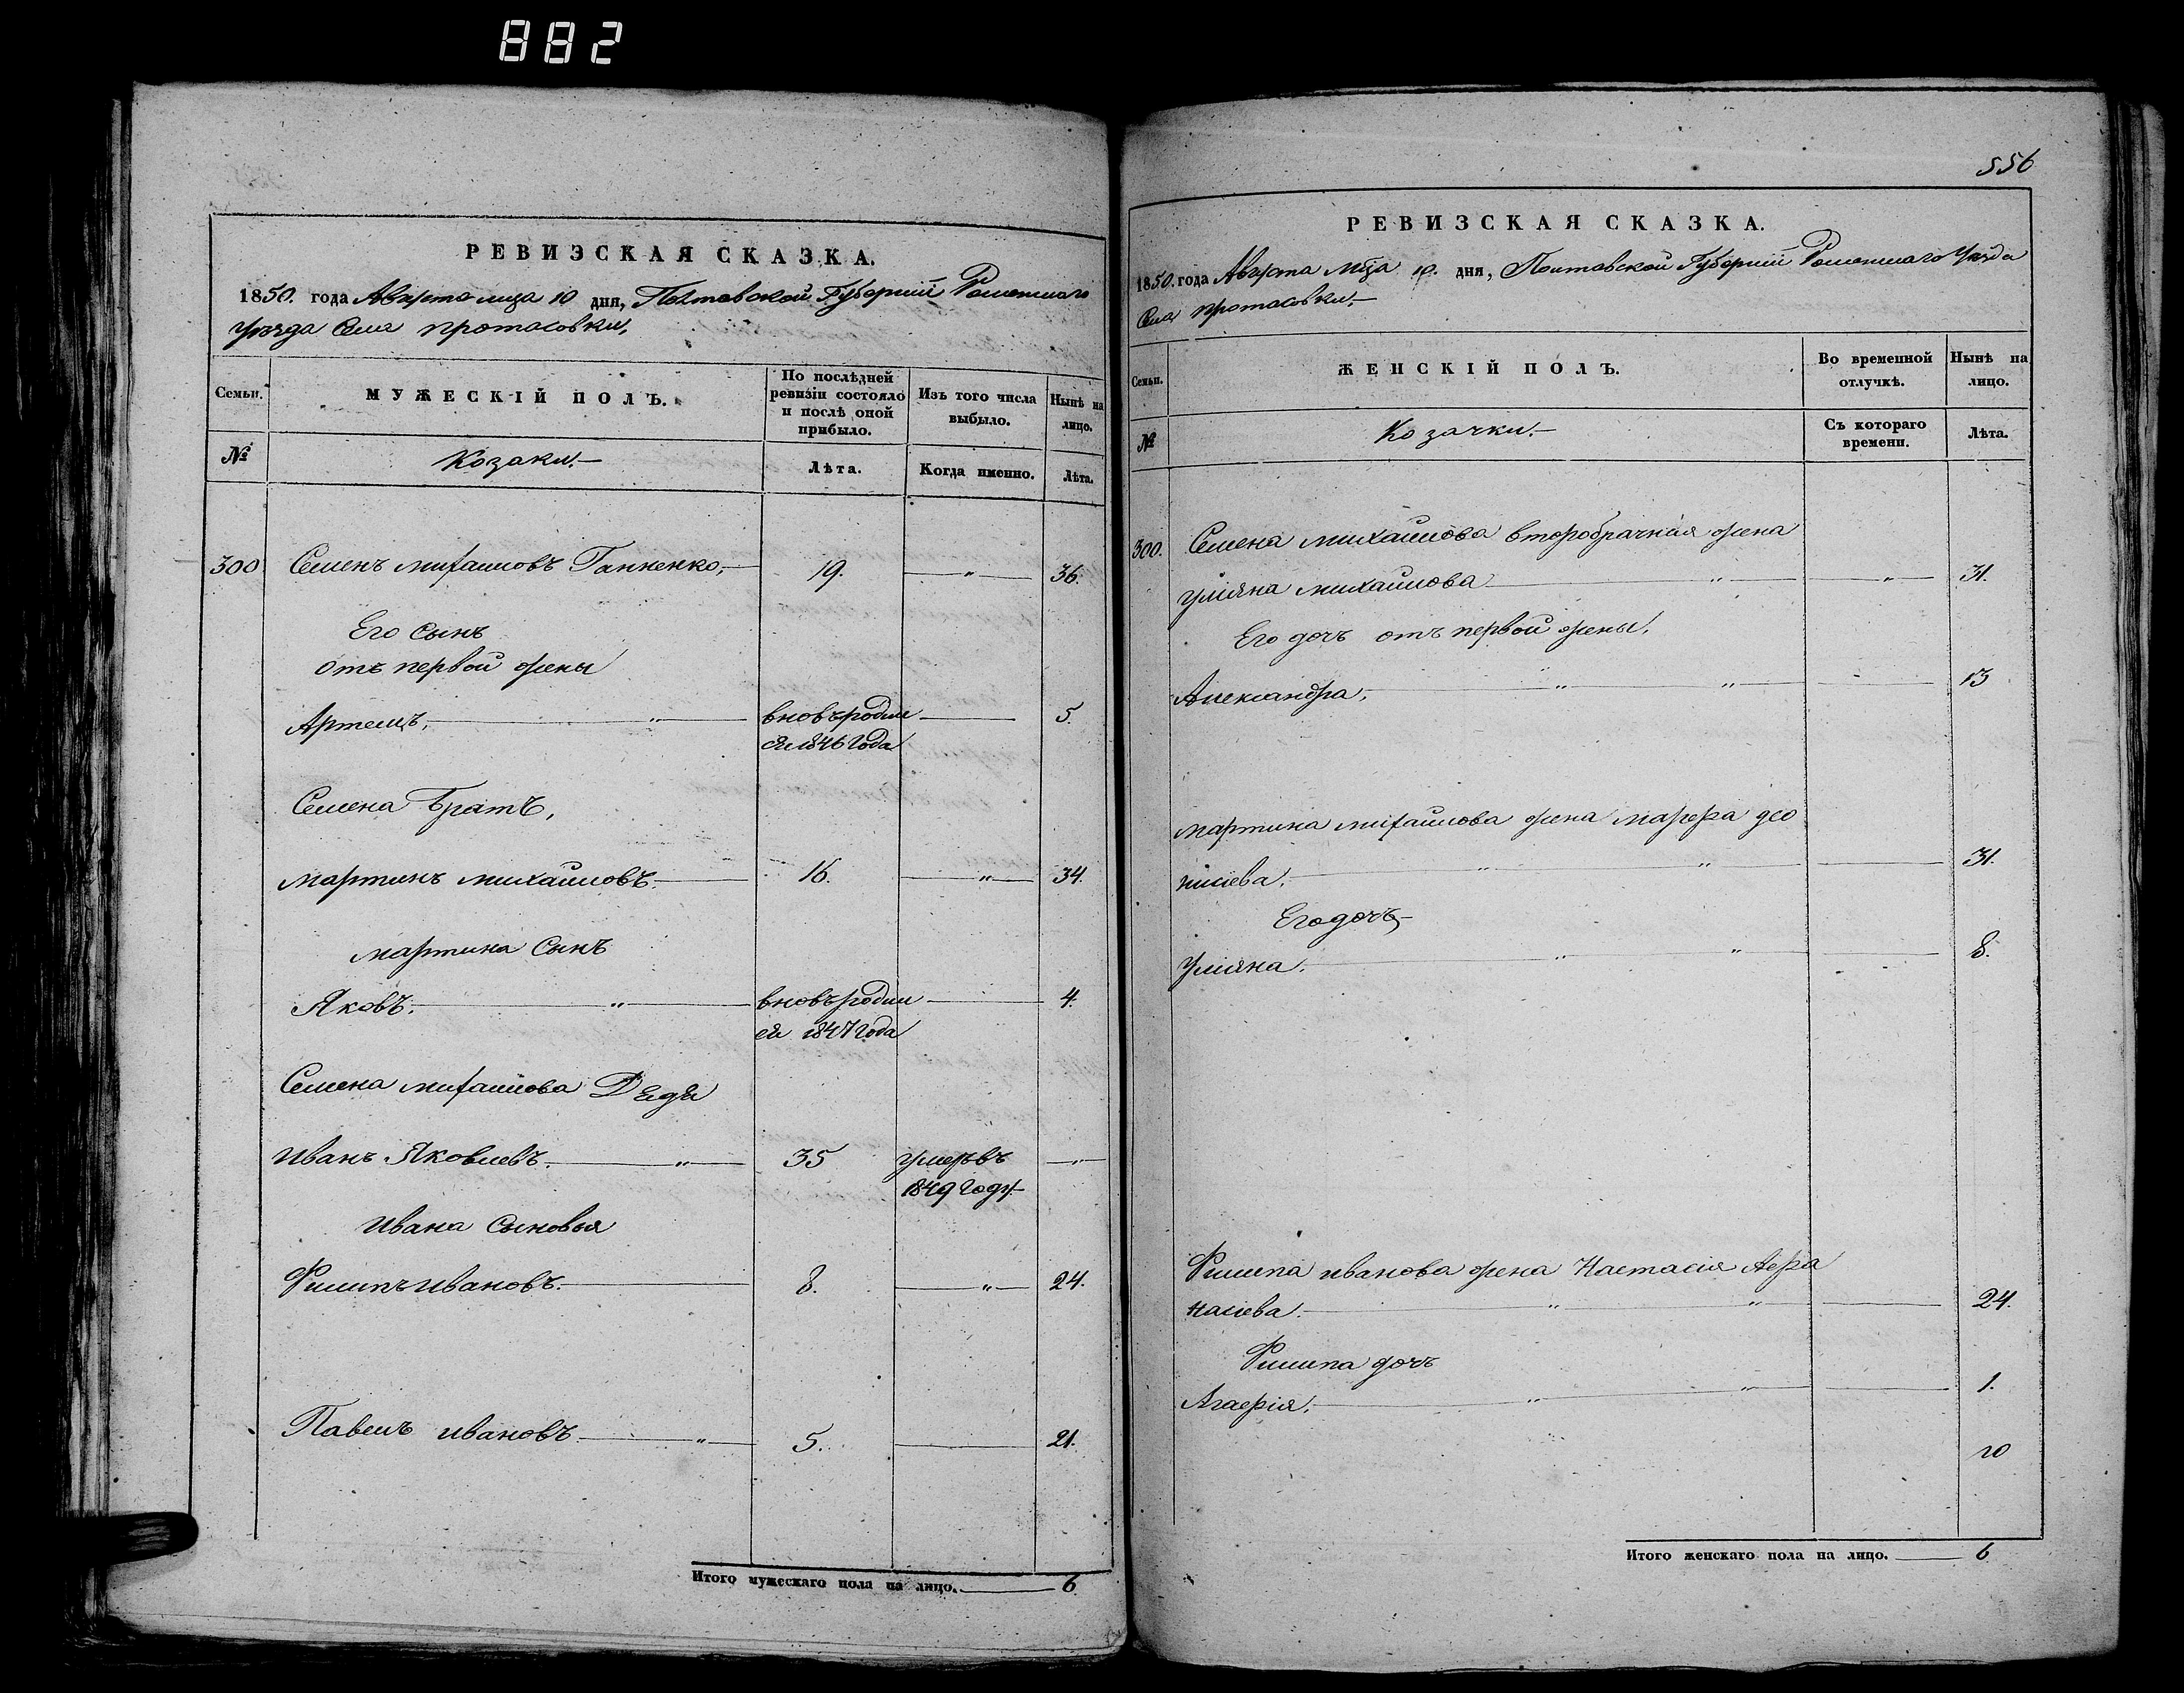 882
РЕВИЗСКАЯ СКАЗКА.
1850. года Августа мца 10 дня, Полтавской Губерніи Роменнаго
Уезда Села Протасовки,
Семьи. МУЖЕСКІЙ ПОЛЪ. По послѣдней ревизіи состояло и послѣ оной прибыло. Изъ того числа выбыло. Нынѣ на лицо.
№ Козаки.— Лѣта. Когда именно. Лѣта.
300 Семенъ Михаиловъ Ганненко, 19. — „ — 36.
Его сынъ
отъ первой жены
Артемъ, „ вновь родил 5.
ся 1846 года
Семена братъ,
Мартинъ Михаиловъ. 16. — „ — 34.
Мартина сынъ
Яковъ. „ вновь родил 4.
ся 1847 года
Семена Михаилова Дядя
Иванъ Яковлевъ. „ 35 умеръ въ „
1849 году
Ивана сыновья
Филипъ Ивановъ. 8. „ 24.
Павелъ Ивановъ „ 5. 21.
Итого мужескаго пола на лицо. 6.
556
РЕВИЗСКАЯ СКАЗКА.
1850. года Августа мца 10. дня, Полтавской Губерніи Роменнаго Уезда
Села Протасовки.—
Семьи. ЖЕНСКІЙ ПОЛЪ. Во временной отлучкѣ. Нынѣ на лицо.
№ Козачки.— Съ котораго времени. Лѣта.
300. Семена Михаилова второбрачная жена
Уліяна Михаилова „ „ 31.
Его дочъ отъ первой жены,
Александра, „ „ 13
Мартина Михаилова жена Марфа Део
нисіева, „ „ 31.
Его дочъ,—
Уліяна. „ „ 8.
Филипа Иванова жена Настасія Афа
насіева. „ „ 24.
Филипа дочъ
Агафія. „ „ 1.
10
Итого женскаго пола на лицо. 6